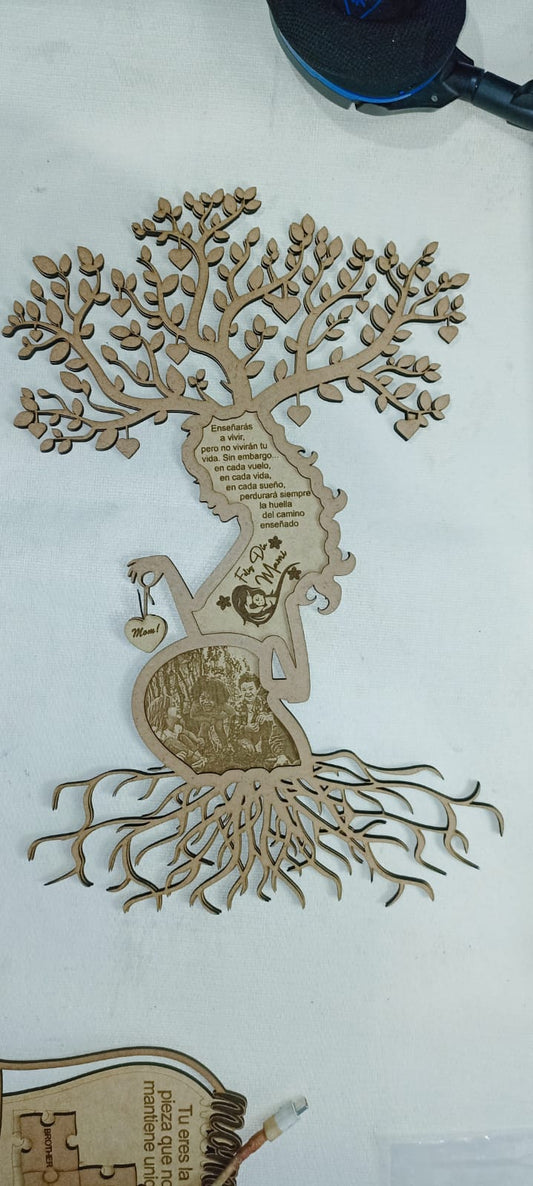 Enseñarás
a vivir,
pero no vivirán tu
vida. Sin embargo...
en cada vuelo,
en cada vida,
en cada sueño,
perdurará siempre
la huella
del camino
enseñado
Feliz Día
Mami
Mom!
Tu eres la
pieza que no
mantiene
BROTHER